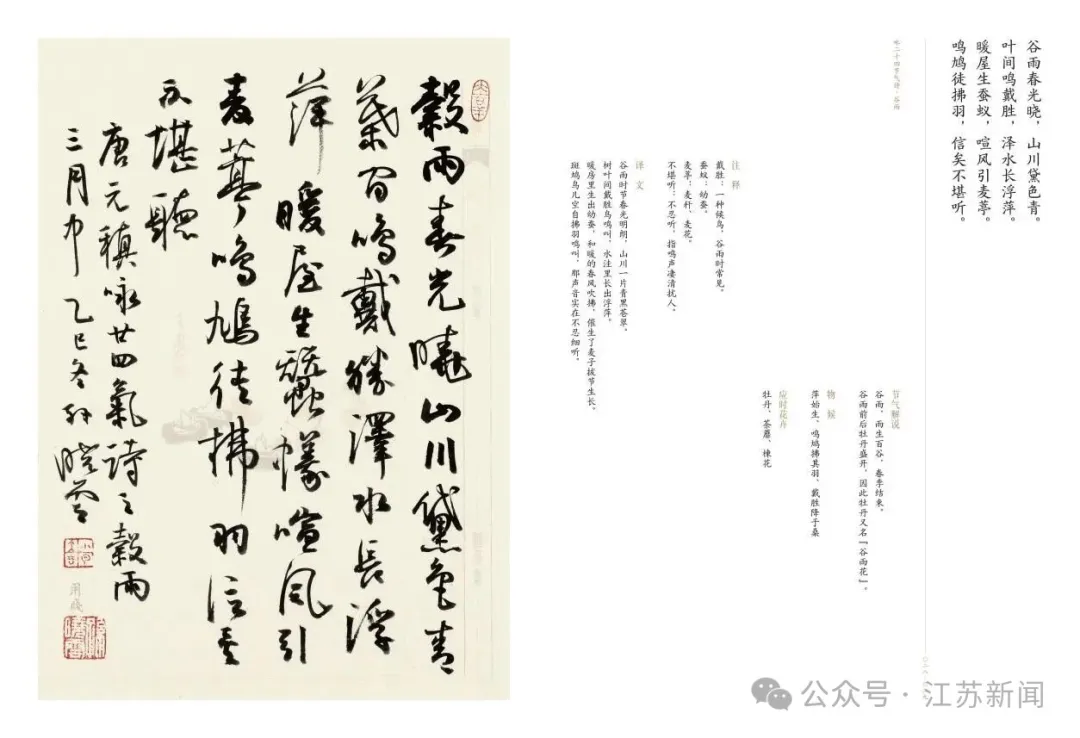 谷雨春光晓，山川黛色青。
叶间鸣戴胜，泽水长浮萍。
暖屋生蚕蚁，喧风引麦葶。
鸣鸠徒拂羽，信矣不堪听。
咏二十四节气诗·谷雨
节气解说
谷雨，雨生百谷，春季结束。
谷雨前后牡丹盛开，因此牡丹又名「谷雨花」。
物候
萍始生、鸣鸠拂其羽、戴胜降于桑
应时花卉
牡丹、荼蘼、楝花
注释
戴胜：一种候鸟，谷雨时常见。
蚕蚁：幼蚕。
麦葶：麦秆、麦花。
不堪听：不忍听，指鸣声凄清扰人。
译文
谷雨时节春光明朗，山川一片青黑苍翠。
树叶间戴胜鸟鸣叫，水洼里长出浮萍。
暖房里生出幼蚕，和暖的春风吹拂，催生了麦子拔节生长。
斑鸠鸟儿空自拂羽鸣叫，那声音实在不忍细听。
穀雨春光曉山川黛色青
葉間鳴戴勝澤水長浮
萍暖屋生蠶蟻喧風引
麥葶鳴鳩徒拂羽信矣
不堪聽
唐元稹咏廿四氣詩之穀雨
三月中乙巳冬孫曉雲
公众号·江苏新闻